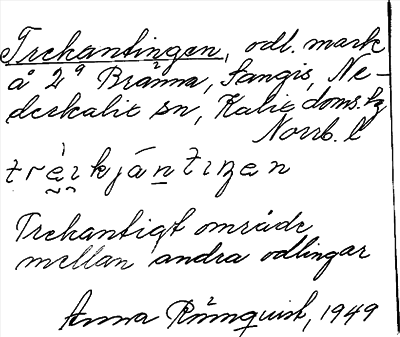 Trekantingen, odl. mark
å 2ª Bränna, Sangis, Ne-
derkalix sn, Kalix doms. tg
Norrb. l
Trekantigt område
mellan andra odlingar
Anna Rönnquist, 1949